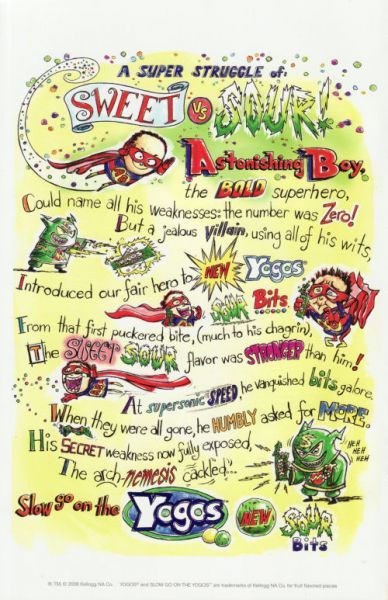 A SUPER STRUGGLE of:
SWEET VS SOUR!
Astonishing Boy,
the BOLD superhero,
Could name all his weaknesses: the number was Zero!
But a jealous Villain, using all of his wits,
Introduced our fair hero to NEW Yogos
SOUR Bits.
From that first puckered bite, (much to his chagrin),
The SWEET SOUR flavor was STRONGER than him!
At supersonic SPEED he vanquished bits galore.
When they were all gone, he HUMBLY asked for MORE.
His SECRET weakness now fully exposed,
The arch-nemesis cackled...
HEH
HEH
HEH
Slow go on the Yogos NEW SOUR
Bits
® TM, © 2006 Kellogg NA Co. YOGOS® and SLOW GO ON THE YOGOS™ are trademarks of Kellogg NA Co. for fruit flavored pieces